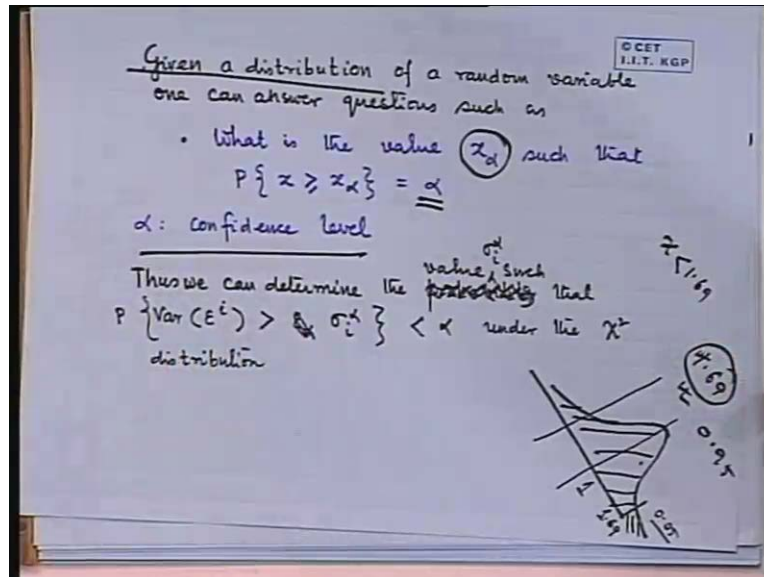 © CET
I.I.T. KGP
Given a distribution of a random variable
one can answer questions such as
• What is the value x_α such that
P{ x ⩾ x_α } = α
α : confidence level
Thus we can determine the value σ_i^α such that
P {Var (ε^i) > σ_i^α } < α under the χ²
distribution
1.69
0.95
1
1.69
0.05